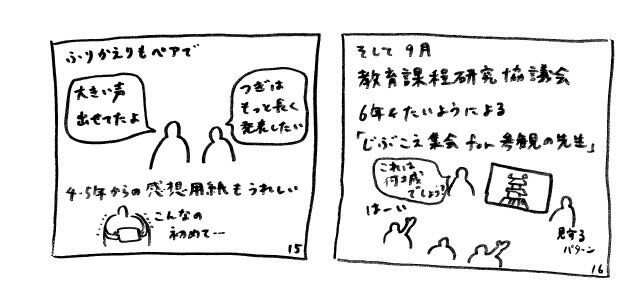 ふりかえりもペアで
大きい声
出せてたよ
つぎは
もっと長く
発表したい
4・5年からの感想用紙もうれしい
こんなの
初めて…
15
そして9月
教育課程研究協議会
6年4たいようによる
「じぶこえ集会 for 参観の先生」
これは
何2歳
でしょう?
はーい
見守る
パターン
16